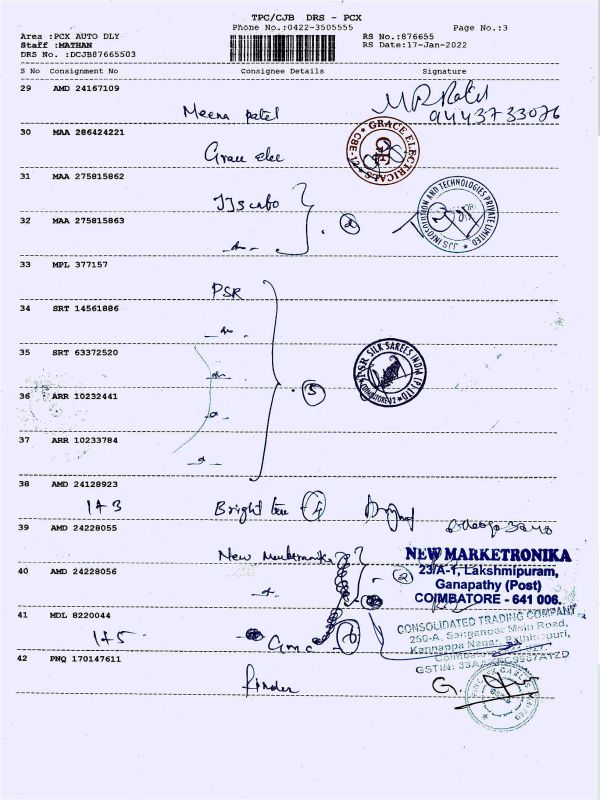 TPC/CJB DRS - PCX
Phone No.:0422-3505555 Page No.:3
Area :PCX AUTO DLY RS No.:876655
Staff :MATHAN RS Date:17-Jan-2022
DRS No. :DCJB87665503
S No Consignment No Consignee Details Signature
29 AMD 24167109
Meena patel
9443733076
30 MAA 286424221
Grace ele
GRACE ELECTRICALS
CBE-12
GE
31 MAA 275815862
JJS info
2
JJS INFOSOLUTION AND TECHNOLOGIES PRIVATE LIMITED
32 MAA 275815863
33 MPL 377157
PSR
34 SRT 14561886
35 SRT 63372520
PSR SILK SAREES INDIA (P) LTD
COIMBATORE-12
5
36 ARR 10232441
37 ARR 10233784
38 AMD 24128923
1+3 Bright
39 AMD 24228055
New Marktronika
NEW MARKETRONIKA
23/A-1, Lakshmipuram,
Ganapathy (Post)
COIMBATORE - 641 006.
2
40 AMD 24228056
41 MDL 8220044
1+5
CONSOLIDATED TRADING COMPANY
250-A, Sanganoor Main Road,
Kannappa Nagar, Rathinapuri,
42 PNQ 170147611
finder
G.